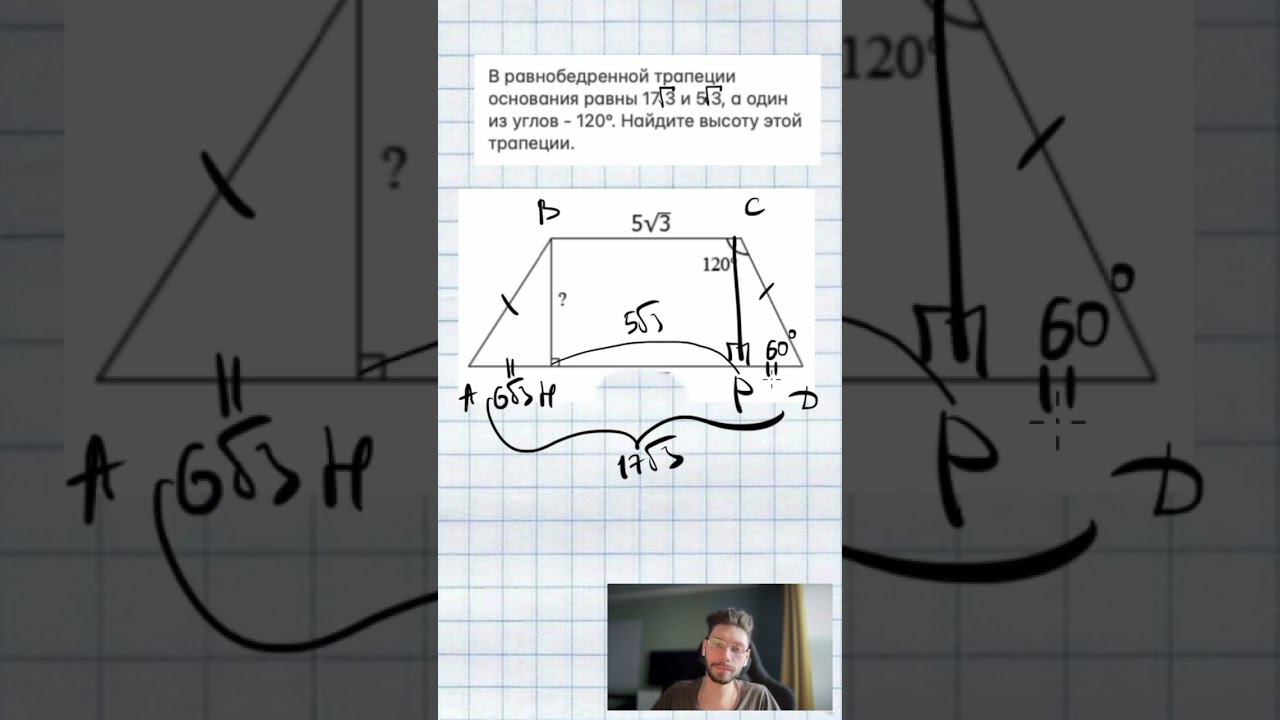 В равнобедренной трапеции
основания равны 17√3 и 5√3, а один
из углов - 120°. Найдите высоту этой
трапеции.
B 5√3 C
120°
?
5√3
60°
A 6√3 H P D
17√3
120°
?
60°
A 6√3 H P D